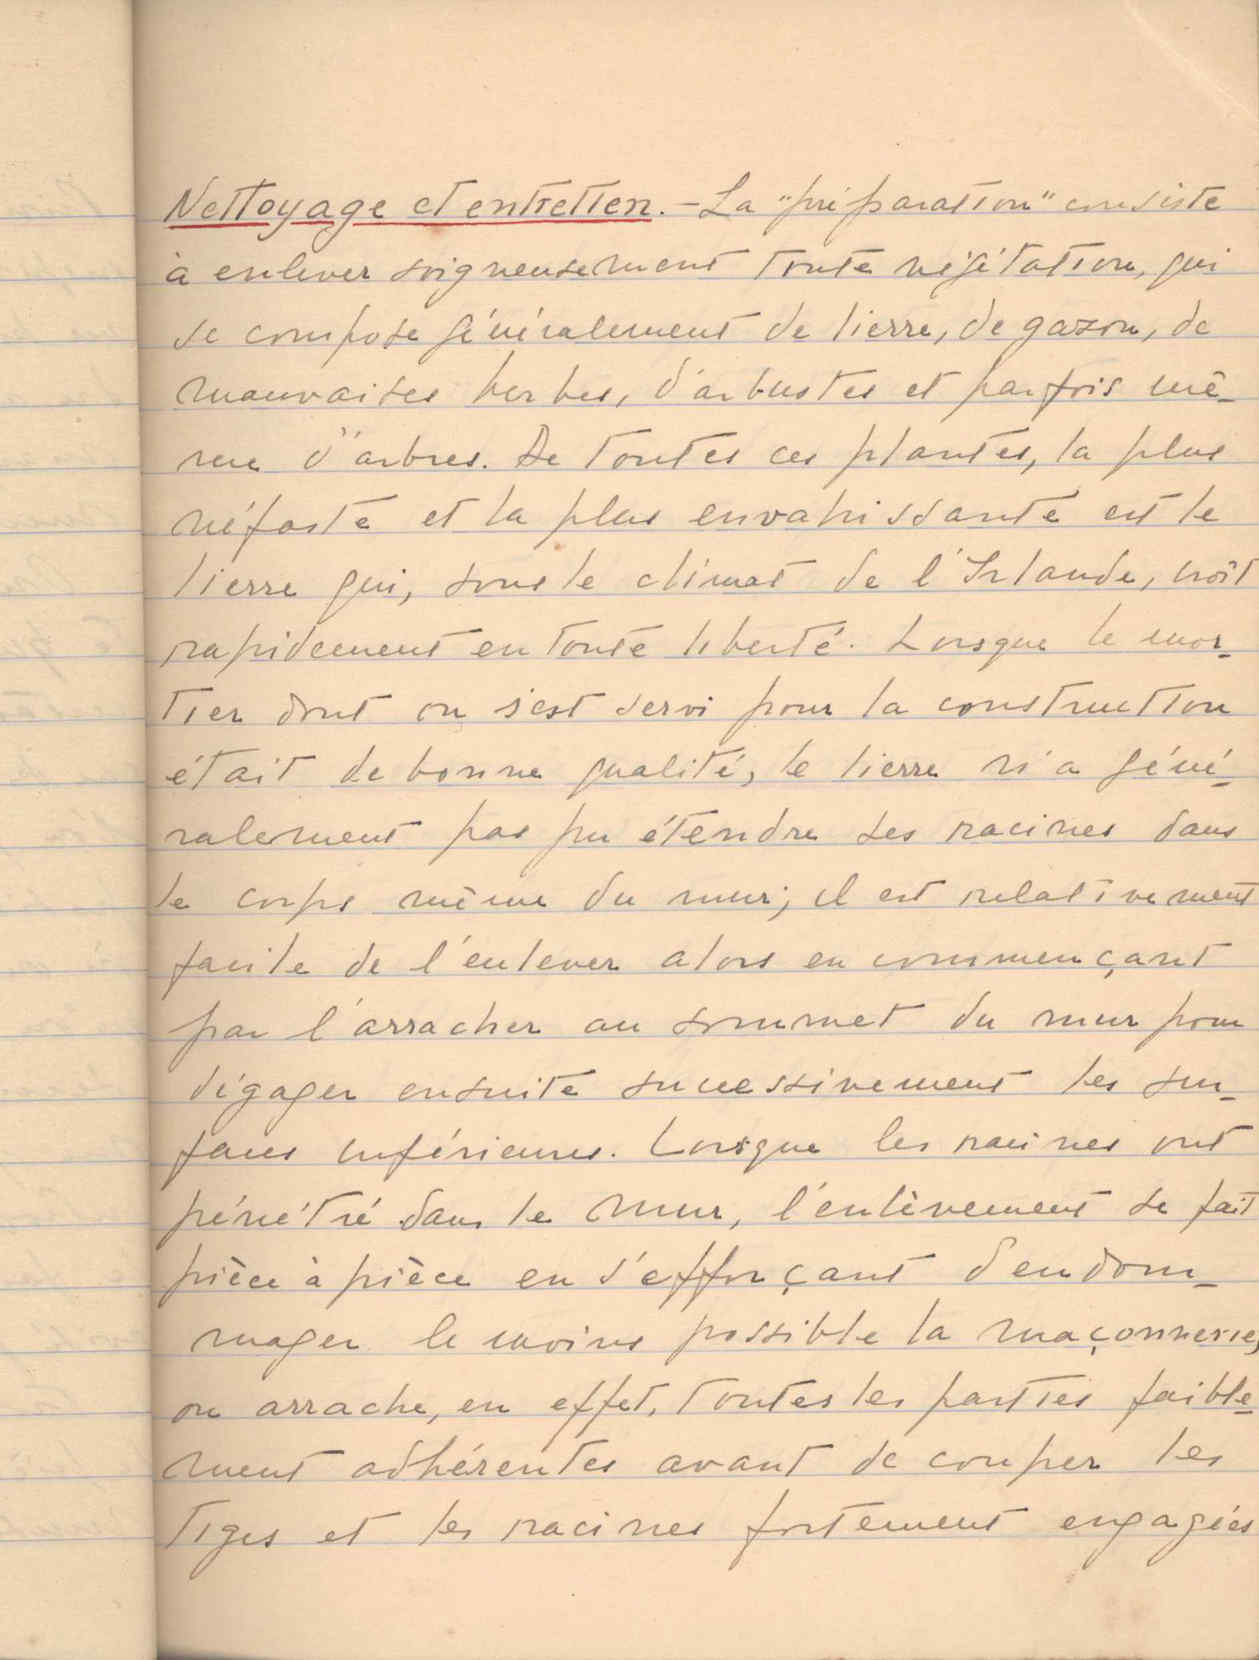 Nettoyage et entretien. – La "préparation" consiste
à enlever soigneusement toute végétation, qui
se compose généralement de lierre, de gazon, de
mauvaises herbes, d'arbustes et parfois mê-
me d'arbres. De toutes ces plantes, la plus
néfaste et la plus envahissante est le
lierre qui, sous le climat de l'Irlande, croît
rapidement en toute liberté. Lorsque le mor-
tier dont on s'est servi pour la construction
était de bonne qualité, le lierre n'a géné-
ralement pas pu étendre ses racines dans
le corps même du mur; il est relativement
facile de l'enlever alors en commençant
par l'arracher au sommet du mur pour
dégager ensuite successivement les sur-
faces inférieures. Lorsque les racines ont
pénétré dans le mur, l'enlèvement se fait
pièce à pièce en s'efforçant d'endom-
mager le moins possible la maçonnerie,
on arrache, en effet, toutes les parties faible-
ment adhérentes avant de couper les
tiges et les racines fortement engagées